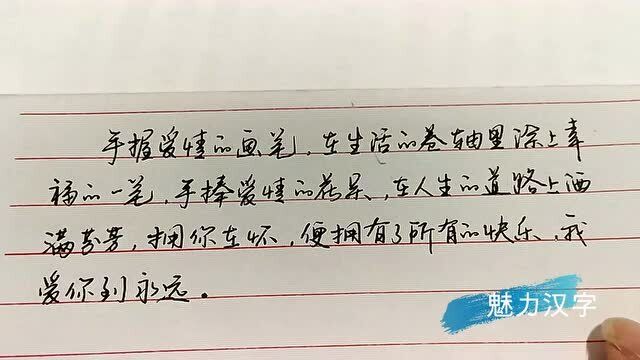 手握爱情的画笔，在生活的卷轴里添上幸
福的一笔，手捧爱情的花果，在人生的道路上洒
满芬芳，拥你在怀，便拥有了所有的快乐，我
爱你到永远。
魅力汉字